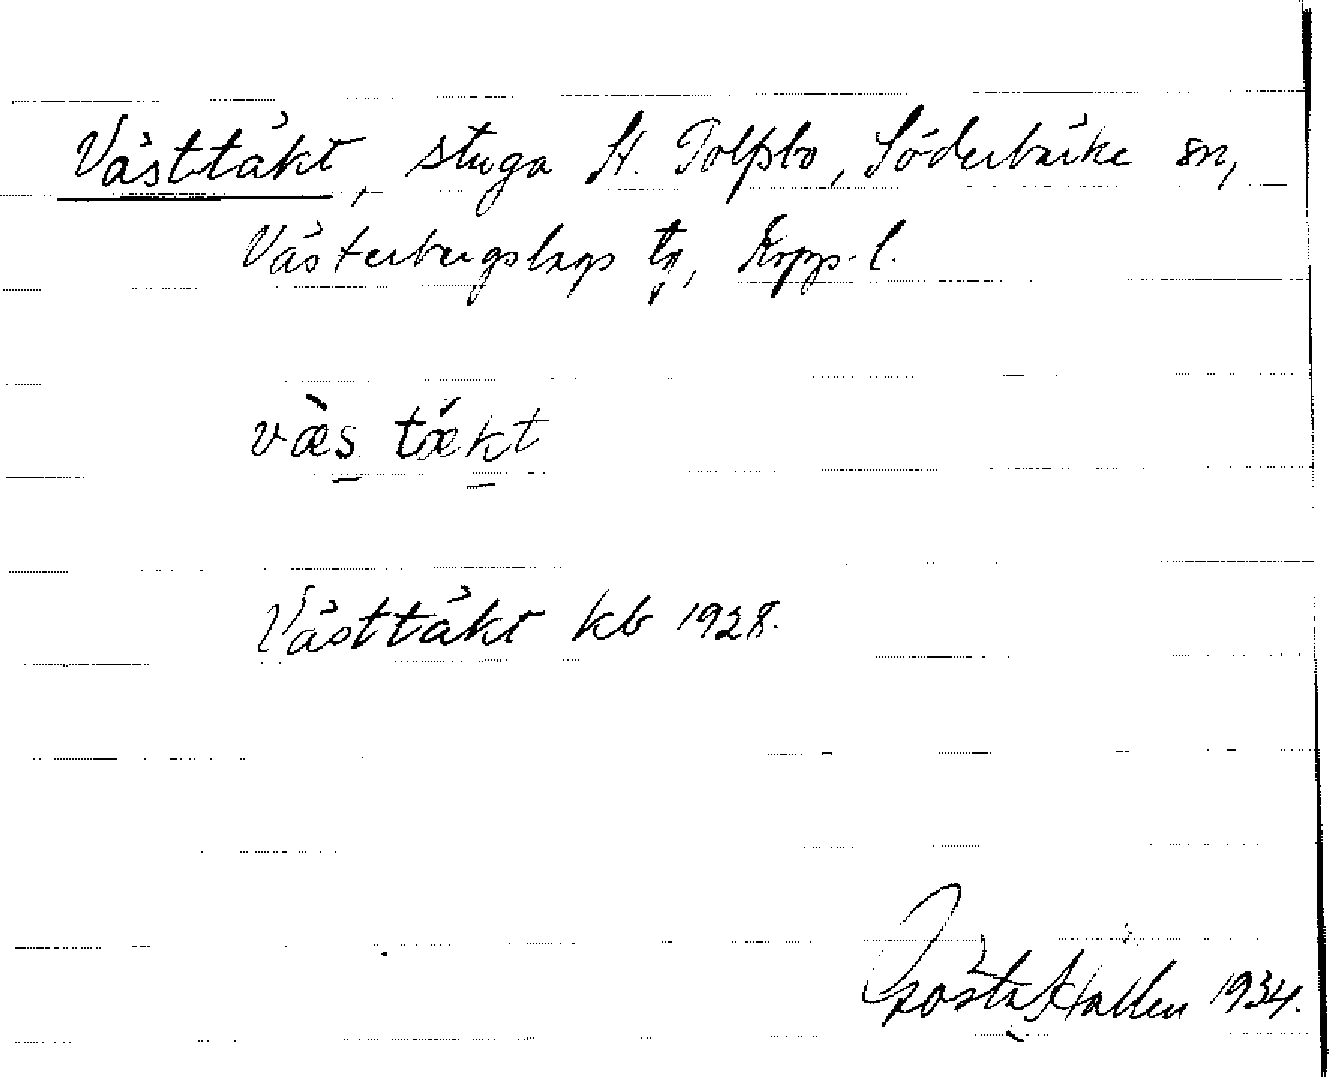 Västtäkt, stuga St. Tolfsbo, Söderbärke sn,
Västerbergslags tg, Kopp. l.
væ̀s tǽkt
Västtäkt kb 1928.
Gösta Hallén 1934.